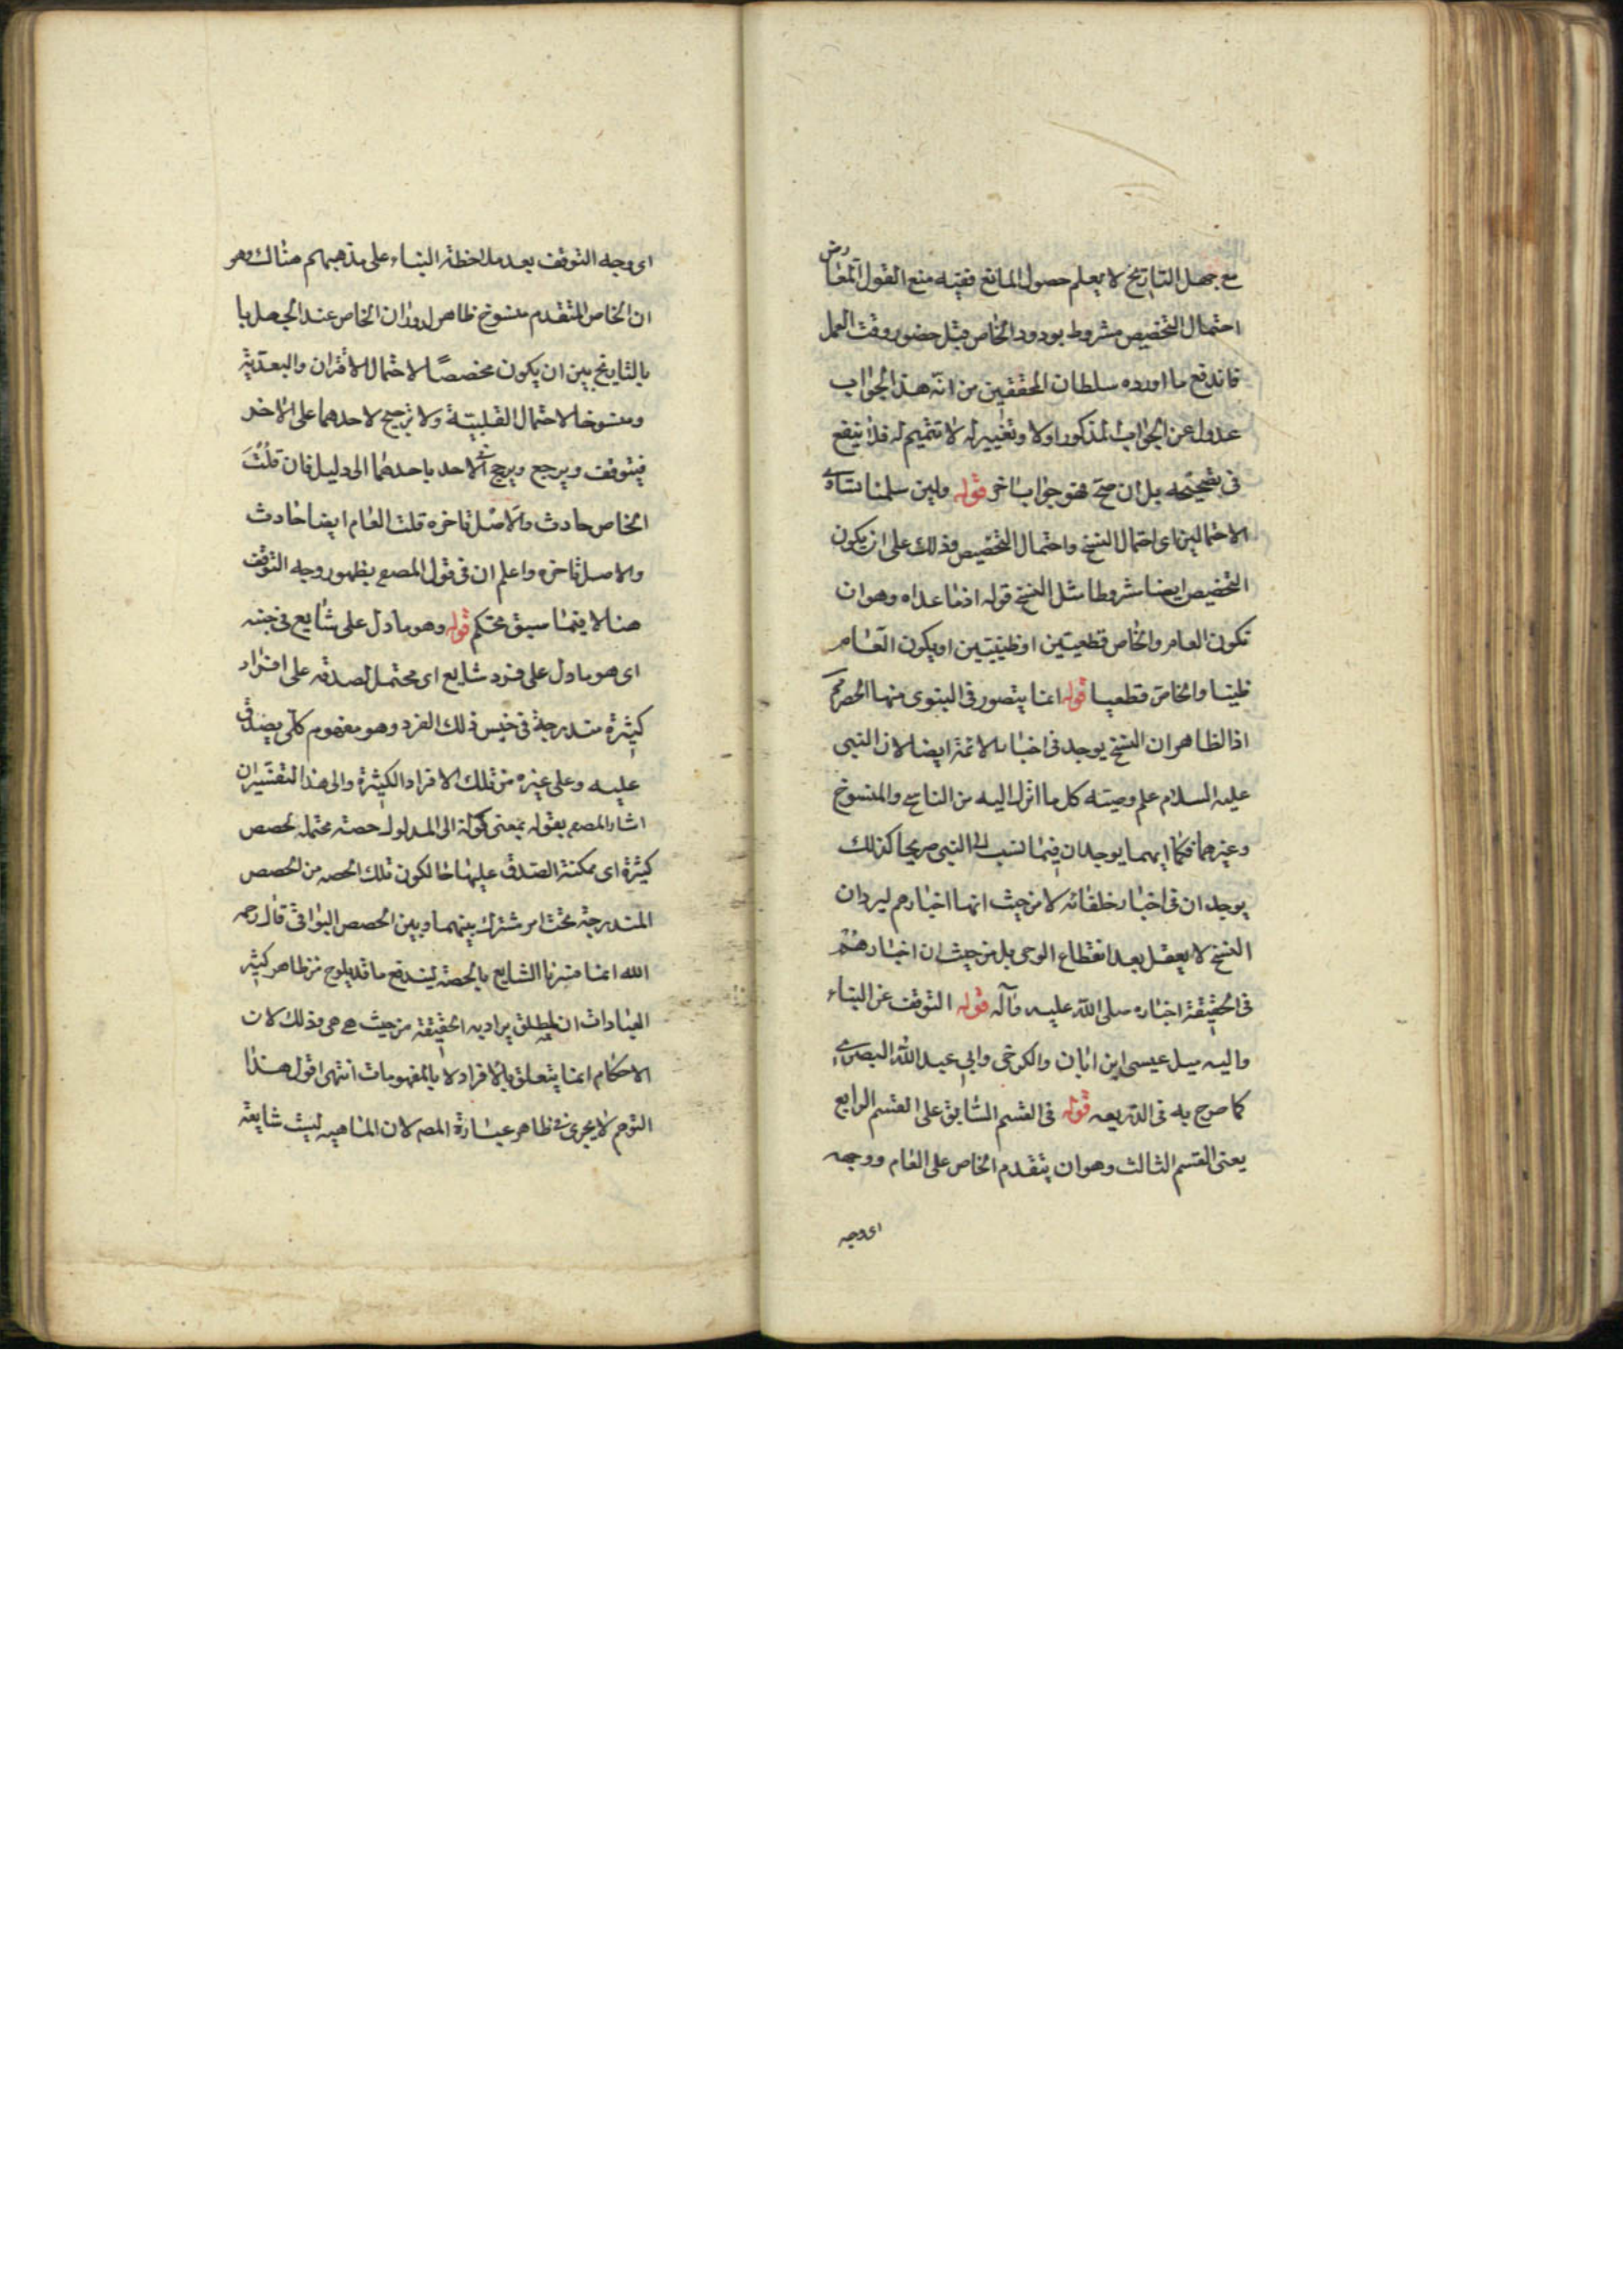 مع جهل التاريخ لا يعلم حصول المانع ففيه منع القول المعا رض
احتمال التخصيص مشروط بورود الخاص قبل حضور وقت العمل
فاندفع ما اورده سلطان المحققين من انّه هذا الجواب
عدول عن الجواب المذكور اولا وتغيير له لا تتميم له فلا ينفع
فى تصحيحه بل ان صحّ فهو جواب اخر قوله ولين سلمنا تساوى
الاحتمالين اى احتمال النسخ واحتمال التخصيص وذلك على ان يكون
التخصيص ايضا مشروطا مثل النسخ قوله اذما عداه وهو ان
تكون العام والخاص قطعيين او ظنيين او يكون العام
ظنيا والخاص قطعيا قوله انما يتصور فى النبوى منها الحصر
اذ الظاهر ان النسخ يوجد فى اخبار الائمة ايضا لان النبى
عليه السلام علم وصيته كل ما انزل اليه من الناسخ والمنسوخ
وغيرهما فكما انهما يوجدان فيما نسب الى النبى صريحا كذلك
يوجدان فى اخبار خلفائه لا من حيث انها اخبارهم ليرد ان
النسخ لا يعقل بعد انقطاع الوحى بل من حيث ان اخبارهم
فى الحقيقة اخباره صلى اللّه عليه وآله قوله التوقف عن البناء
واليه ميل عيسى ابن ابان والكرخى وابى عبد اللّه البصرى
كما صرح به فى الذريعه قوله فى القسم السابق على القسم الرابع
يعنى القسم الثالث وهو ان يتقدم الخاص على العام ووجهه
اى وجه
اى وجه التوقف بعد ملاحظة البناء على مذهبهم هناك وهو
ان الخاص المتقدم منسوخ ظاهر لدوران الخاص عند الجهل با
بالتاريخ بين ان يكون مخصصًا لاحتمال الاقتران والبعديّة
ومنسوخا لاحتمال القبلية ولا ترجيح لاحدهما على الاخر
فيتوقف ويرجع ويرجح الاحد باحدهما الى دليل فان قلتَ
الخاص حادث والاصل تاخره قلت العام ايضا حادث
والاصل تاخره واعلم ان فى قول المصع بظهور وجه التوقف
هنا لا فيما سبق محتكم قوله وهو ما دل على شايع فى جنسه
اى هو ما دل على فرد شايع اى محتمل لصدقه على افراد
كثيرة مندرجة فى جنس ذلك الفرد وهو مفهوم كلى يصدق
عليه وعلى غيره من تلك الافراد الكثيرة والى هذا التفسيران
اشار المصع بقوله بمعنى كونه الى المدلول حصة محتملة لحصص
كثيرة اى ممكنة الصدق عليها خا لكون تلك الحصه من الحصص
المندرجة تحت امر مشترك بينهما وبين الحصص البواقى قال رحمه
اللّه انما فسرنا الشايع بالحصة ليندفع ما قد يلوح من ظاهر كثير
العبارات ان المطلق يراد به الحقيقة من حيث هى هى وذلك لان
الاحكام انما يتعلق بالافراد لا بالمفهومات انتهى اقول هذا
التوهم لا يجرى فى ظاهر عبارة المصه لان الماهيه ليست شايعة